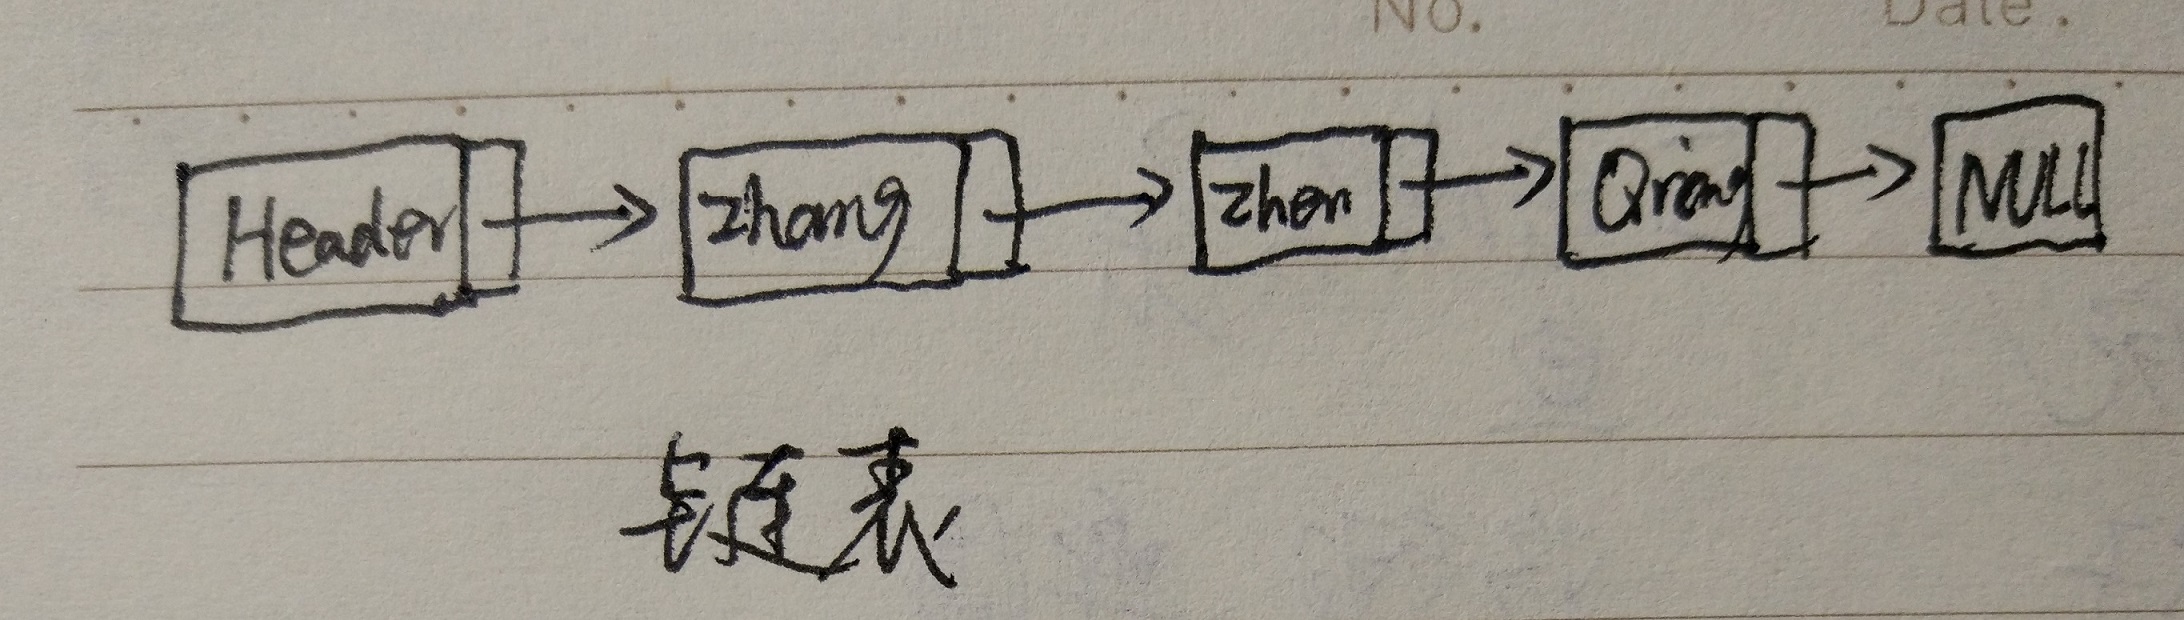 No. Date.
Header Zhang Zhen Qiang NULL
链表